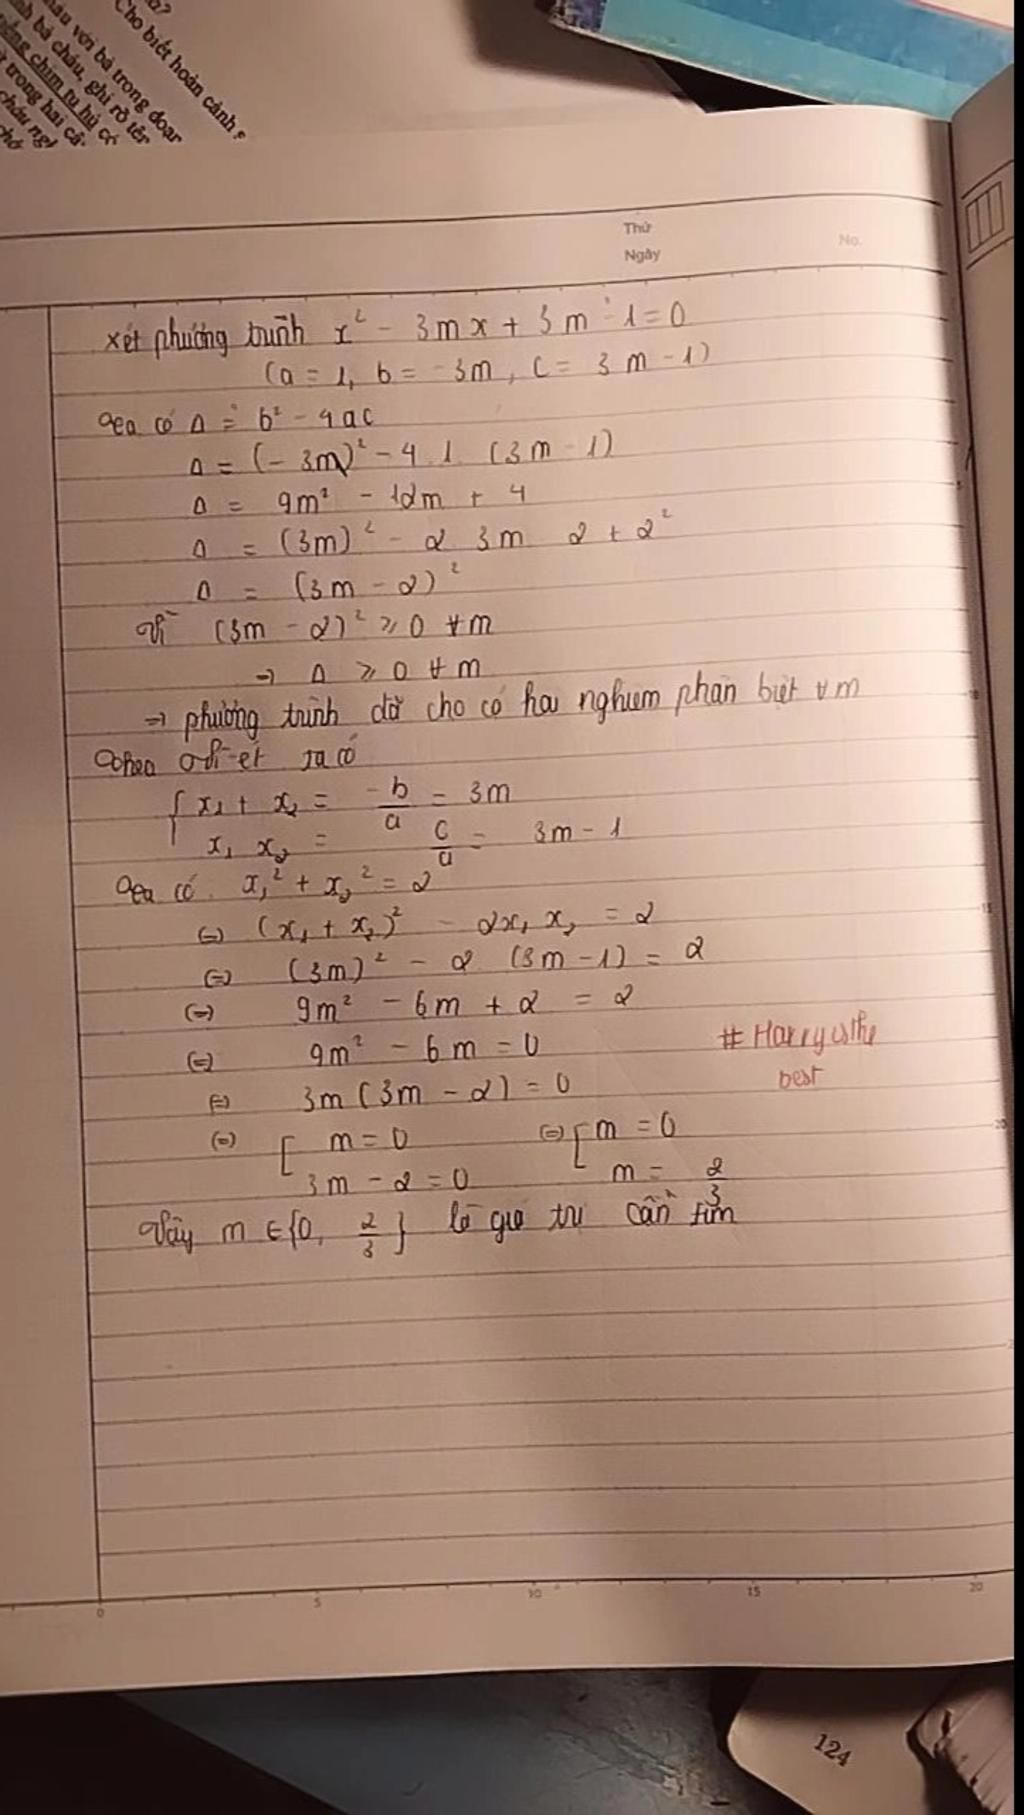 Cho biết hoàn cảnh s
háu với bà trong đoạn
bà cháu, ghi rõ tên
tiếng chim tu hú có
trong hai câ
Thứ
Ngày
No.
xét phương trình x² - 3mx + 3m - 1 = 0
(a = 1, b = -3m, c = 3m - 1)
Ta có Δ = b² - 4ac
Δ = (-3m)² - 4.1.(3m - 1)
Δ = 9m² - 12m + 4
Δ = (3m)² - 2.3m.2 + 2²
Δ = (3m - 2)²
Vì (3m - 2)² ≥ 0 ∀m
→ Δ ≥ 0 ∀m
→ phương trình đã cho có hai nghiệm phân biệt ∀m
Theo Vi-et ta có
{ x₁ + x₂ = -b/a = 3m
x₁ x₂ = c/a = 3m - 1
Ta có: x₁² + x₂² = 2
(=) (x₁ + x₂)² - 2x₁x₂ = 2
(=) (3m)² - 2.(3m - 1) = 2
(=) 9m² - 6m + 2 = 2
(=) 9m² - 6m = 0
# Harryisthe
best
(=) 3m(3m - 2) = 0
(=) [ m = 0 (=) [ m = 0
3m - 2 = 0 m = 2/3
Vậy m ∈ {0, 2/3} là giá trị cần tìm
0 5 10 15 20
124